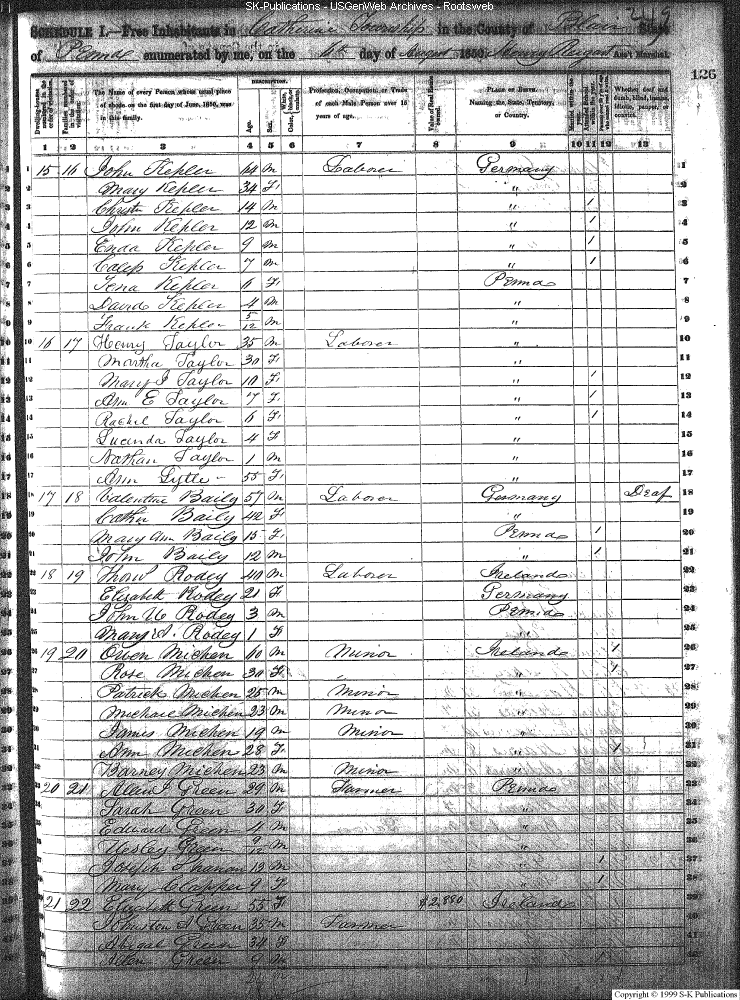 SK-Publications - USGenWeb Archives - Rootsweb
219
SCHEDULE I.—Free Inhabitants in Catherine Township in the County of State
of Penna enumerated by me, on the day of August 1850. Ass't Marshal.
126
Dwelling-houses numbered in the order of visitation.
Families numbered in the order of visitation.
The Name of every Person whose usual place of abode on the first day of June, 1850, was in this family.
DESCRIPTION.
Age.
Sex.
Color,
Profession, Occupation, or Trade of each Male Person over 15 years of age.
Value of Real Estate owned.
PLACE OF BIRTH. Naming the State, Territory, or Country.
Married within the year.
Whether deaf and dumb, blind, insane, idiotic, pauper, or convict.
1 2 3 4 5 6 7 8 9 10 11 12 13
1 15 16 John Kepler 44 M Laborer Germany 1
2 Mary Kepler 34 F " 2
3 Christn Kepler 14 M " / 3
4 John Kepler 12 M " / 4
5 Enda Kepler 9 M " / 5
6 Caleb Kepler 7 M " / 6
7 Tena Kepler 6 F Penna 7
8 David Kepler 4 M " 8
9 Frank Kepler 5/12 M " 9
10 16 17 Henry Taylor 35 M Laborer " 10
11 Martha Taylor 30 F " 11
12 Mary J Taylor 10 F " / 12
13 Ann E Taylor 7 F " / 13
14 Rachel Taylor 6 F " / 14
15 Lucinda Taylor 4 F " 15
16 Nathan Taylor 1 M " 16
17 Ann Lytle 55 F " 17
18 17 18 Valentine Baily 57 M Laborer Germany Deaf 18
19 Cathn Baily 42 F " 19
20 Mary Ann Baily 15 F Penna / 20
21 John Baily 12 M " / 21
22 18 19 Rodey 40 M Laborer Ireland 22
23 Elizabeth Rodey 21 F Germany 23
24 John W Rodey 3 M Penna 24
25 Mary Rodey 1 F " 25
26 19 20 Owen Michen 60 M Minor Ireland / 26
27 Rose Michen 30 F " " / 27
28 Patrick Michen 25 M Minor " 28
29 Michael Michen 23 M Minor " 29
30 James Michen 19 M Minor " 30
31 Ann Michen 28 F " / 31
32 Barney Michen 23 M Minor " 32
33 20 21 Green 29 M Farmer Penna 33
34 Sarah Green 30 F " 34
35 Edward Green 4 M " 35
36 Wesley Green 9/12 M " 36
37 Joseph 12 M " / 37
38 Mary Clapper 9 F " / 38
39 21 22 Elizabeth Green 55 F $2,880 Ireland 39
40 A Green 35 M Farmer 40
41 Abigal Green 30 F 41
42 Green 9 M 42
Copyright © 1999 S-K Publications